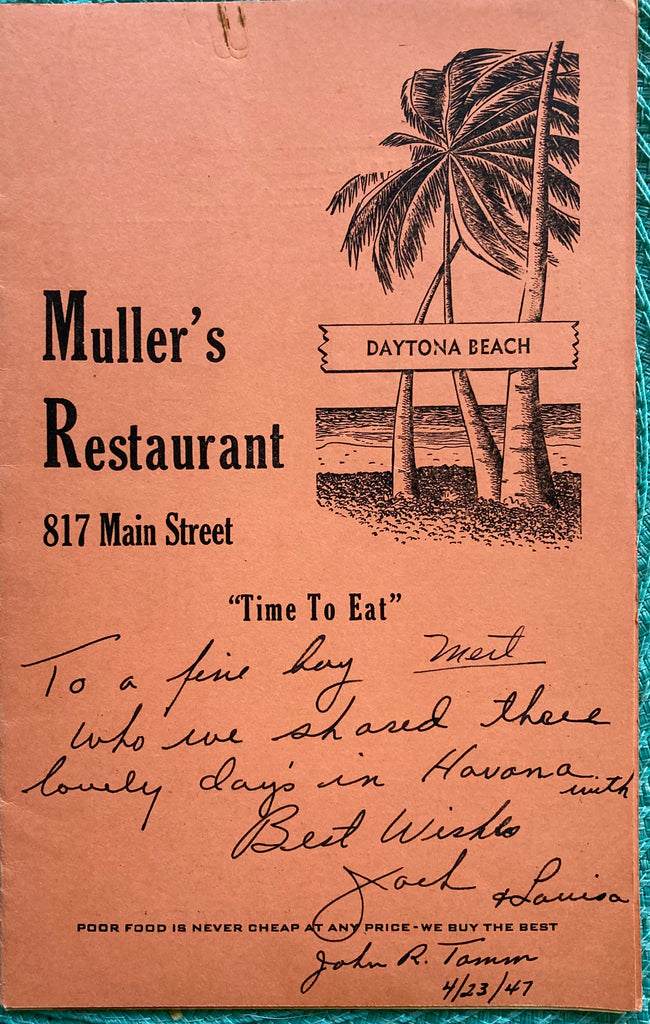 DAYTONA BEACH
Muller's
Restaurant
817 Main Street
"Time To Eat"
To a fine boy Mert
who we shared three
lovely day's in Havana with
Best Wishes
Jack & Louisa
POOR FOOD IS NEVER CHEAP AT ANY PRICE - WE BUY THE BEST
John R. Tamm
4/23/47